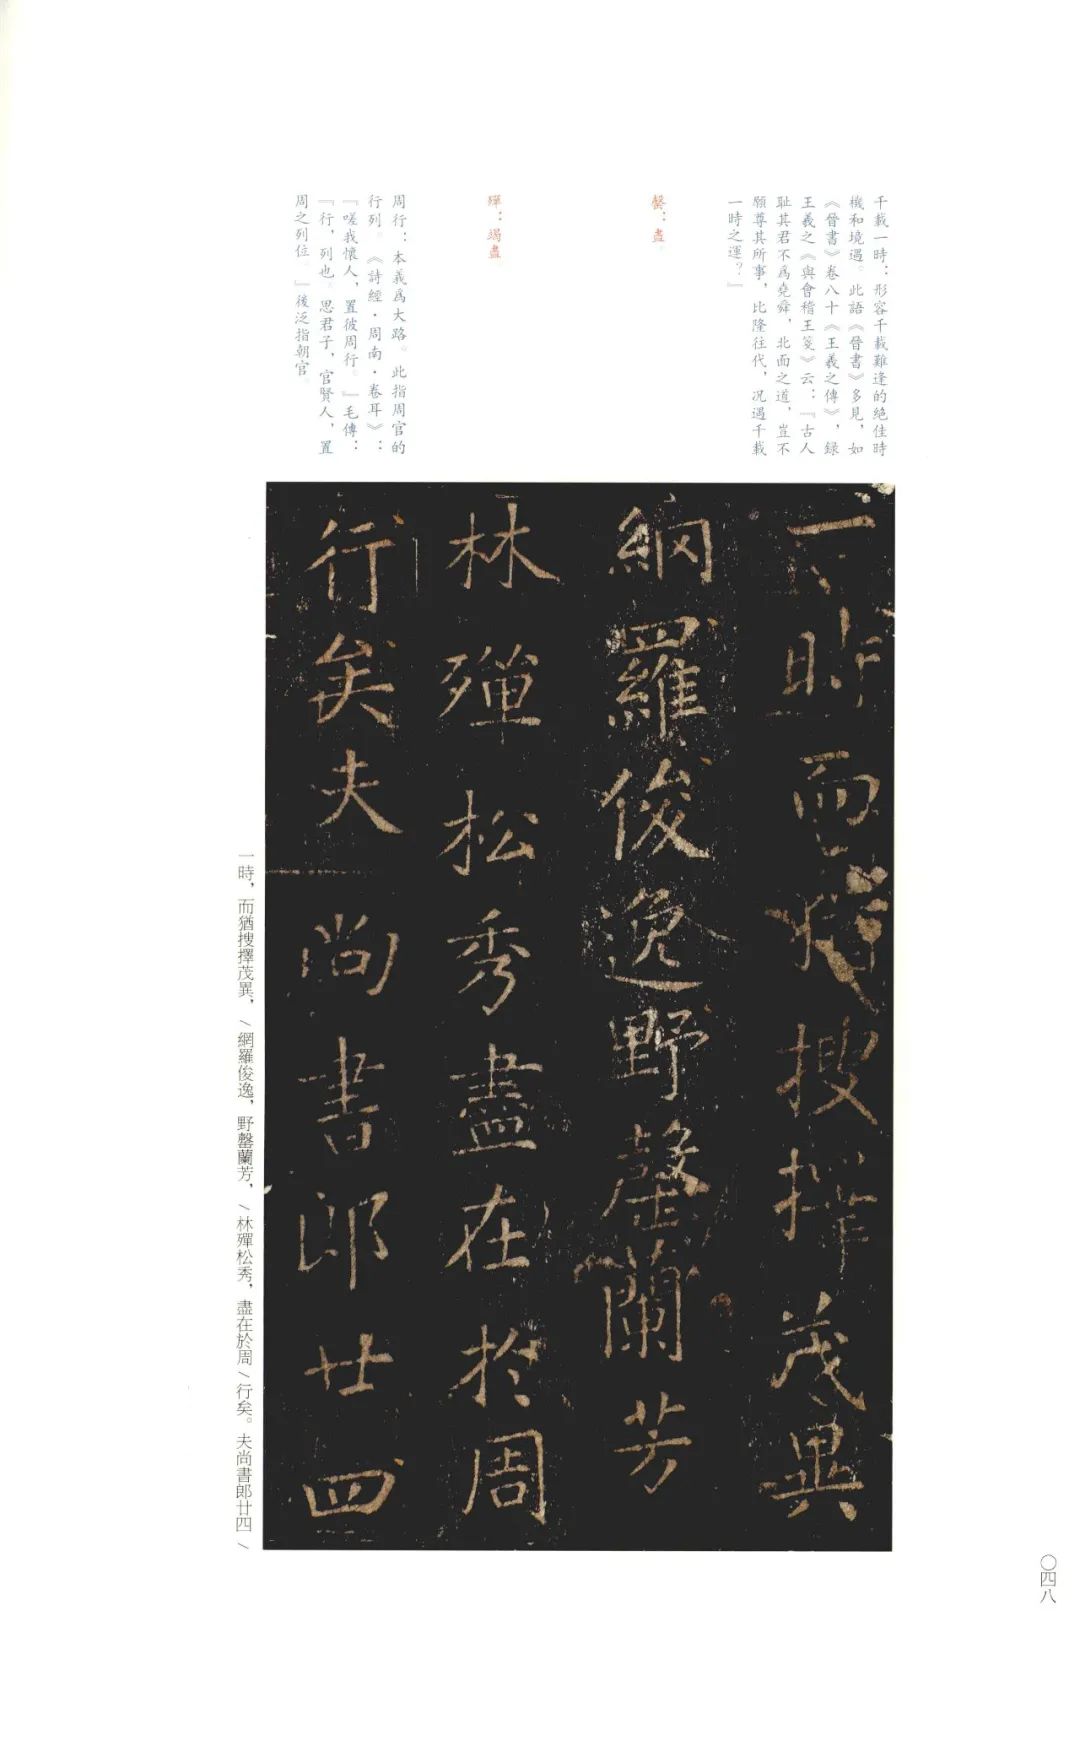 千載一時：形容千載難逢的絶佳時
機和境遇。此語《晉書》多見，如
《晉書》卷八十《王羲之傳》，録
王羲之《與會稽王箋》云：『古人
耻其君不爲堯舜，北面之道，豈不
願尊其所事，比隆往代，况遇千載
一時之運？』
罄：盡。
殫：竭盡
周行：本義爲大路。此指周官的
行列。《詩經·周南·卷耳》：
『嗟我懷人，置彼周行。』毛傳：
『行，列也。思君子，官賢人，置
周之列位。』後泛指朝官。
一時而猶搜擇茂異
網羅俊逸野罄蘭芳
林殫松秀盡在於周
行矣夫尚書郎廿四
一時，而猶搜擇茂異，/網羅俊逸，野罄蘭芳，/林殫松秀，盡在於周/行矣。夫尚書郎廿四/
〇四八